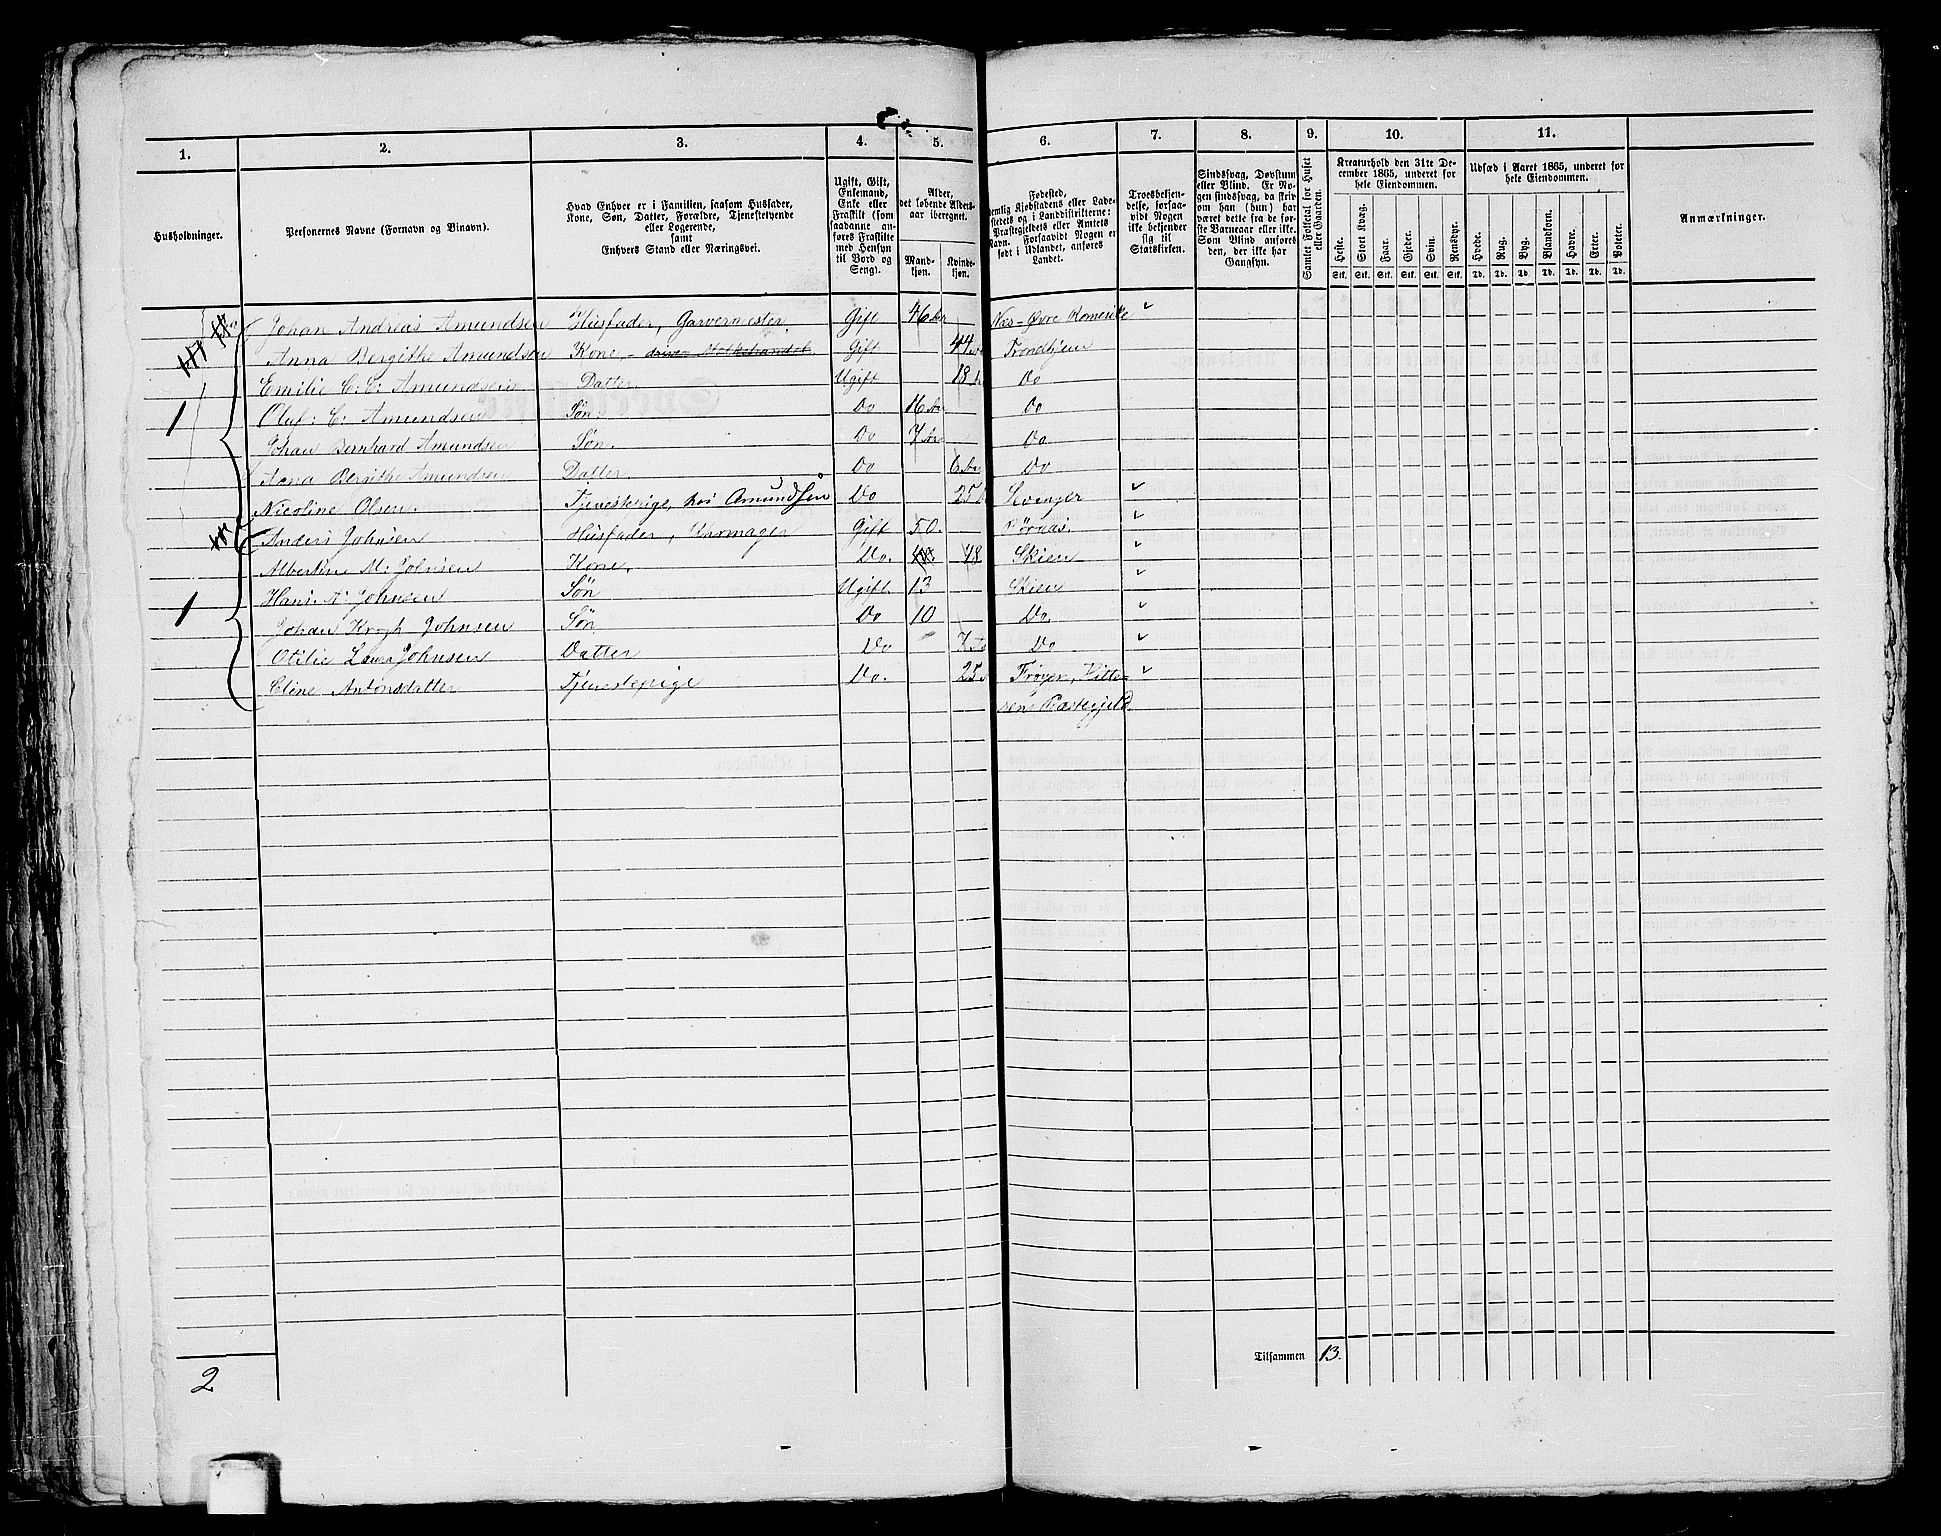 1. 2. 3. 4. 5. 6. 7. 8. 9. 10. 11.
Husholdninger.
Personernes Navne (Fornavn og Binavn).
Hvad Enhver er i Familien, saasom Husfader,
Kone, Søn, Datter, Forældre, Tjenestetyende
eller Logerende,
samt
Enhvers Stand eller Næringsvei.
Ugift, Gift,
Enkemand,
Enke eller
Fraskilt (som
saadanne an-
føres Fraskilte
med Hensyn
til Bord og
Seng).
Alder,
det løbende Alders-
aar iberegnet.
Mand-
kjøn.
Kvinde-
kjøn.
Fødested,
nemlig Kjøbstadens eller Lade-
stedets og i Landdistrikterne:
Præstegjeldets eller Amtets
Navn. Forsaavidt Nogen er
født i Udlandet, anføres
Landet.
Troesbekjen-
delse, forsaa-
vidt Nogen
ikke bekjender
sig til
Statskirken.
Sindssvag, Døvstum
eller Blind. Er No-
gen sindssvag, da skri-
ves om han (hun) har
været dette fra de før-
ste Barneaar eller ikke.
Som Blind anføres
den, der ikke har
Gangsyn.
Samlet Folketal for Huset
eller Gaarden.
Kreaturhold den 31te De-
cember 1865, underet for
hele Eiendommen.
Heste. Stort Kvæg. Faar. Gjeder. Svin. Rensdyr.
Stk. Stk. Stk. Stk. Stk. Stk.
Udsæd i Aaret 1865, underet for
hele Eiendommen.
Hvede. Rug. Byg. Blandkorn. Havre. Erter. Poteter.
Td. Td. Td. Td. Td. Td. Td.
Anmærkninger.
Johan Andreas Amundsen Husfader, Garvermester Gift 46 Næs - Øvre Romerike
Anna Bergithe Amundsen Kone - driver Melkehandel. Gift 44 Trondhjem
Emilie C: C: Amundsen Datter Ugift 18 Do
1 Oluf: C: Amundsen Søn Do 16 Do
Johan Bernhard Amundsen Søn. Do 7 Do
Anna Bergithe Amundsen Datter Do 6 Do
Nicoline Olsen. Tjenestepige, hos Amundsen Do 25 Levanger
Anders Johnsen Husfader, Uhrmager Gift 50. Børnæs.
Albertine M: Johnsen Kone. Do. 48 Skien
1 Hans. A: Johnsen Søn Ugift. 13 Skien
Johan Krogh Johnsen Søn Do 10 Do.
Otilie Laura Johnsen Datter Do 7 Do
Eline Antonsdatter Tjenestepige Do. 25 Frøyen, Hitte-
rens Præstegjeld.
Tilsammen 13.
2